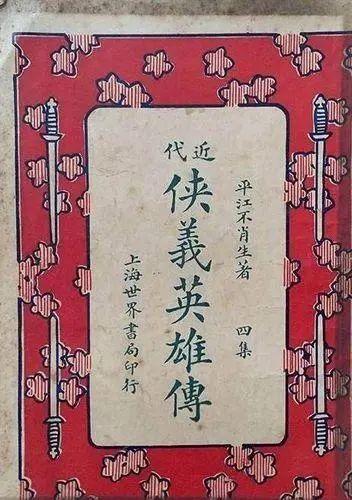 平江不肖生著 四集
近代
侠義英雄傳
上海世界書局印行